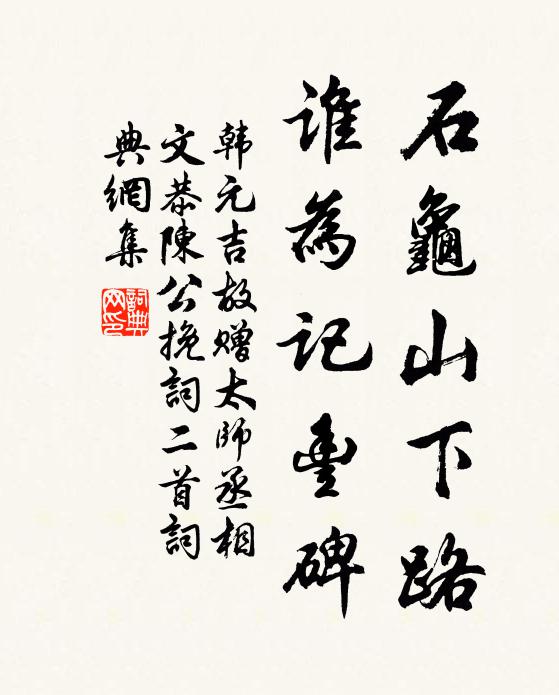 石龜山下路
誰為記豊碑
韩元吉故赠太師丞相
文恭陳公挽詞二首詞
典網集
詞典網印